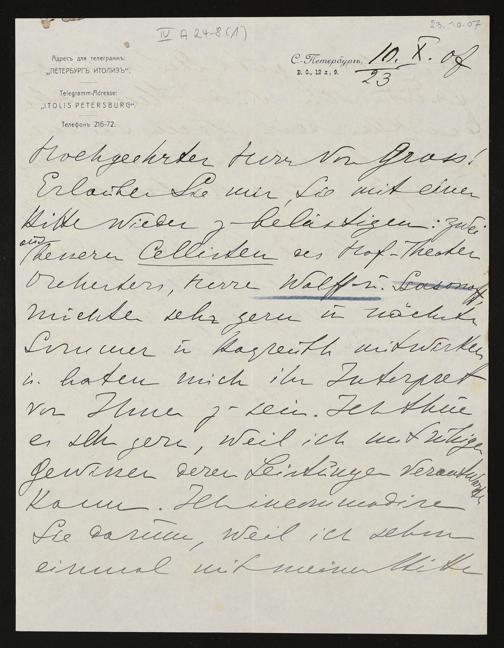 IV A 24-8 (1)
23.10.07
Адресъ для телеграммъ:
„ПЕТЕРБУРГЪ ИТОЛИЗЪ“.
Telegramm-Adresse:
„ITOLIS PETERSBURG“.
Телефонъ 216-72.
С.-Петербургъ, 10. X. 07
В. О., 12 л. 9.
23
Hochgeehrter Herr von Gross!
Erlauben Sie mir, Sie mit einer
Bitte wieder z- belästigen: zwei
aus
unseren Cellisten des Hof-Theater
Orchesters, Herrn Wolff u.
möchten sehr gern in nächsten
Sommer in Bayreuth mitwirken
u. baten mich ihr Interpret
vor Ihnen z- sein. Ich thue
es sehr gern, weil ich mit ruhigem
Gewissen deren Leistungen verantworten
kann. Ich incommodire
Sie darum, weil ich schon
einmal mit meiner Bitte